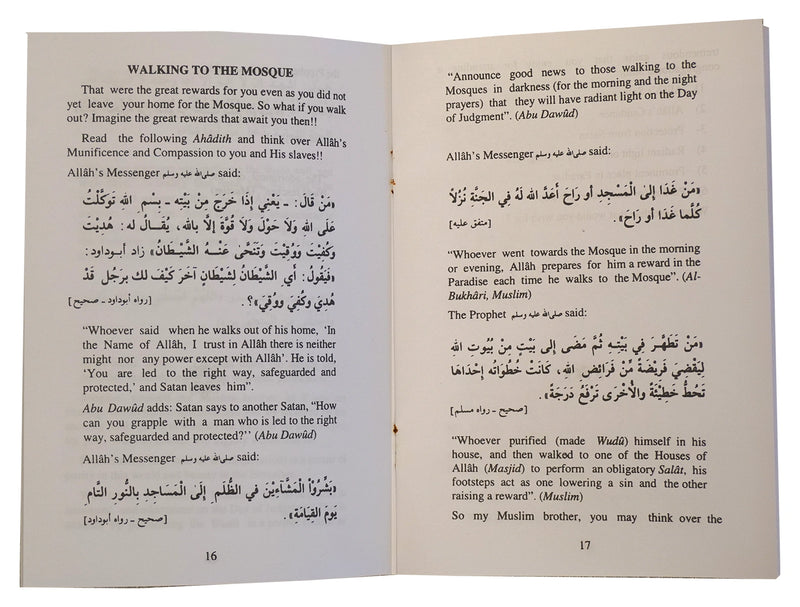 WALKING TO THE MOSQUE
That were the great rewards for you even as you did not
yet leave your home for the Mosque. So what if you walk
out? Imagine the great rewards that await you then!!
Read the following Ahâdith and think over Allâh's
Munificence and Compassion to you and His slaves!!
Allâh's Messenger صلى الله عليه وسلم said:
«مَنْ قَالَ: ـ يَعْنِي إِذَا خَرَجَ مِنْ بَيْتِه ـ بِسْمِ اللهِ تَوَكَّلْتُ
عَلَى اللهِ وَلاَ حَوْلَ وَلاَ قُوَّةَ إِلاَّ بِالله، يُقَـالُ لَه: هُدِيْتَ
وَكُفِيْتَ وَوُقِيْتَ وَتَنَحَّى عَنْـهُ الشَّيْطَـانُ» زاد أبـوداود:
«فَيَقُولُ: أَيِ الشَّيْطَانُ لِشَيْطَانٍ آخَرَ كَيْفَ لك بِرَجُلٍ قَدْ
هُدِيَ وَكُفِيَ وَوُقِيَ»؟. [رواه أبوداود - صحيح]
"Whoever said when he walks out of his home, 'In
the Name of Allâh, I trust in Allâh there is neither
might nor any power except with Allâh'. He is told,
'You are led to the right way, safeguarded and
protected,' and Satan leaves him".
Abu Dawûd adds: Satan says to another Satan, "How
can you grapple with a man who is led to the right
way, safeguarded and protected?'' (Abu Dawûd)
Allâh's Messenger صلى الله عليه وسلم said:
«بَشِّرُوْا الْمَشَّاءِيْنَ في الظُّلَمِ إِلَى الْمَسَاجِدِ بِالنُّورِ التَّامِ
يَومَ القِيَامَةِ». [صحيح - رواه أبوداود]
16
"Announce good news to those walking to the
Mosques in darkness (for the morning and the night
prayers) that they will have radiant light on the Day
of Judgment". (Abu Dawûd)
Allâh's Messenger صلى الله عليه وسلم said:
«مَنْ غَدَا إِلَى الْمَسْجِدِ أو رَاحَ أَعَدَّ اللهُ لَهُ فِي الجَنَّةِ نُزُلاً
كُلَّمَا غَدَا أو رَاحَ». [متفق عليه]
"Whoever went towards the Mosque in the morning
or evening, Allâh prepares for him a reward in the
Paradise each time he walks to the Mosque". (Al-
Bukhâri, Muslim)
The Prophet صلى الله عليه وسلم said:
«مَنْ تَطَهَّـرَ فِي بَيْتِـهِ ثُمَّ مَضَى إِلَى بَيْتٍ مِنْ بُيُوتِ اللهِ
لِيَقْضِيَ فَرِيْضَةً مِّنْ فَرَائِضِ اللهِ، كَانَتْ خُطْوَاتُه إِحْدَاهَا
تَحُطُّ خَطِيْئَةً وَالأُخْرَى تَرْفَعُ دَرَجَةً».
[صحيح - رواه مسلم]
"Whoever purified (made Wudû) himself in his
house, and then walked to one of the Houses of
Allâh (Masjid) to perform an obligatory Salât, his
footsteps act as one lowering a sin and the other
raising a reward". (Muslim)
So my Muslim brother, you may think over the
17